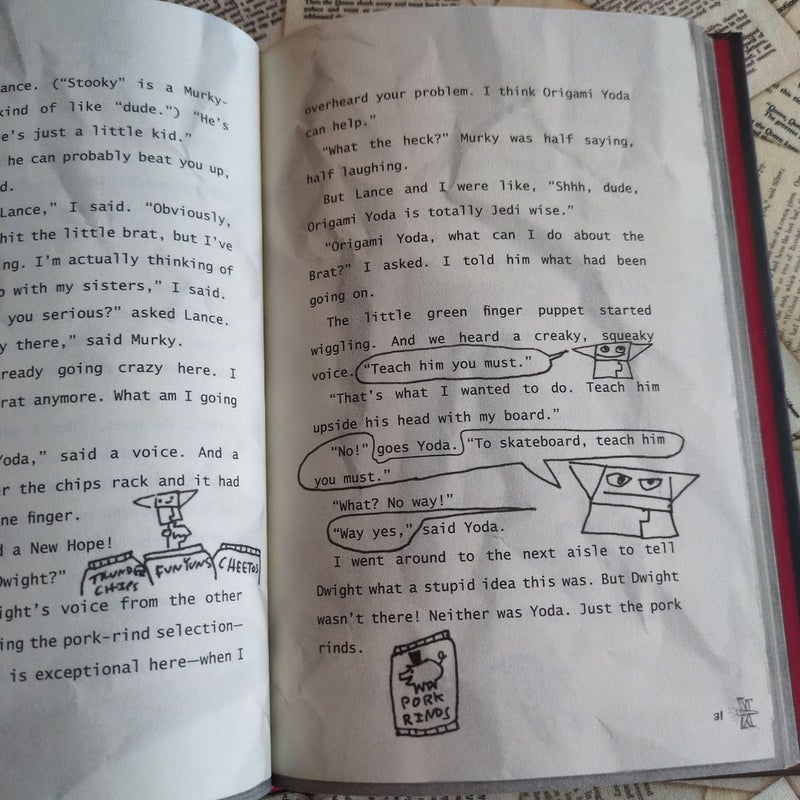 ance. (“Stooky” is a Murky-
kind of like “dude.”) “He’s
e’s just a little kid.”
he can probably beat you up,
d.
Lance,” I said. “Obviously,
hit the little brat, but I’ve
ng. I’m actually thinking of
with my sisters,” I said.
you serious?” asked Lance.
y there,” said Murky.
ready going crazy here. I
rat anymore. What am I going
Yoda,” said a voice. And a
r the chips rack and it had
ne finger.
d a New Hope!
Dwight?”
THUNDER
CHIPS
FUNYUNS
CHEETOS
ight’s voice from the other
ing the pork-rind selection—
is exceptional here—when I
overheard your problem. I think Origami Yoda
can help.”
“What the heck?” Murky was half saying,
half laughing.
But Lance and I were like, “Shhh, dude,
Origami Yoda is totally Jedi wise.”
“Origami Yoda, what can I do about the
Brat?” I asked. I told him what had been
going on.
The little green finger puppet started
wiggling. And we heard a creaky, squeaky
voice. “Teach him you must.”
“That’s what I wanted to do. Teach him
upside his head with my board.”
“No!” goes Yoda. “To skateboard, teach him
you must.”
“What? No way!”
“Way yes,” said Yoda.
I went around to the next aisle to tell
Dwight what a stupid idea this was. But Dwight
wasn’t there! Neither was Yoda. Just the pork
rinds.
PORK
RINDS
31